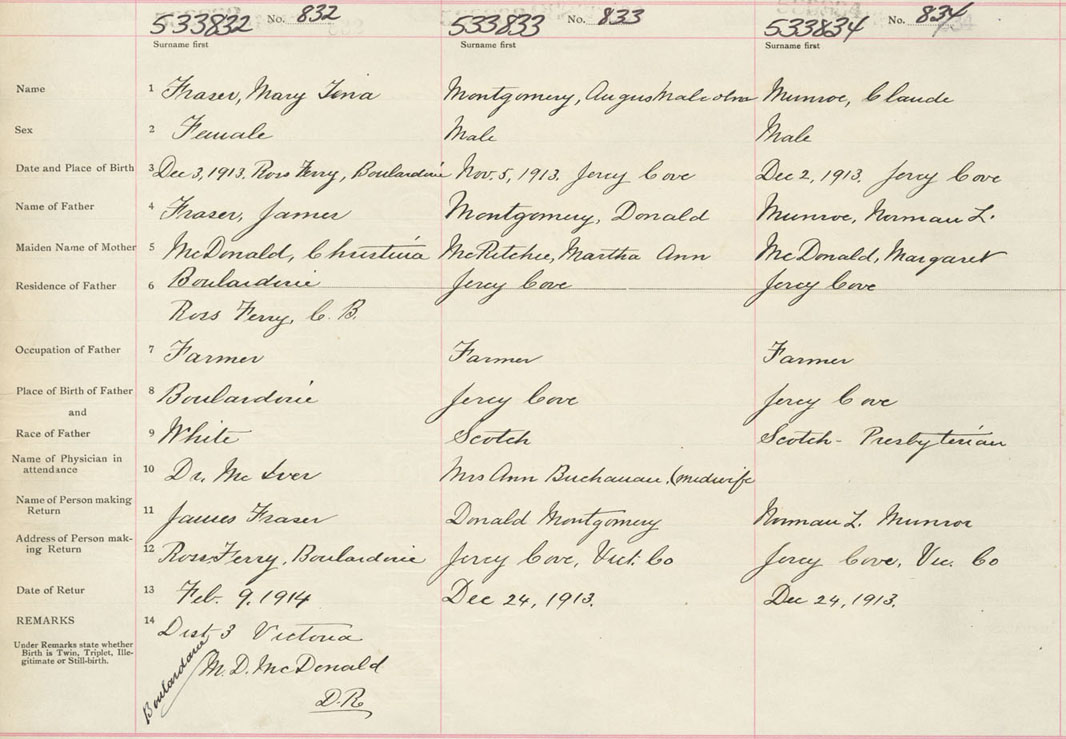 533832 No. 832 533833 No. 833 533834 No. 834
Surname first Surname first Surname first
Name 1 Fraser, Mary Tena Montgomery, Angus Malcolm Munroe, Claude
Sex 2 Female Male Male
Date and Place of Birth 3 Dec 3, 1913. Ross Ferry, Boulardirie Nov. 5, 1913. Jercy Cove Dec 2, 1913. Jercy Cove
Name of Father 4 Fraser, James Montgomery, Donald Munroe, Norman L.
Maiden Name of Mother 5 McDonald, Christina McRitchie, Martha Ann McDonald, Margaret
Residence of Father 6 Boulardirie Jercy Cove Jercy Cove
Ross Ferry, C. B.
Occupation of Father 7 Farmer Farmer Farmer
Place of Birth of Father 8 Boulardirie Jercy Cove Jercy Cove
and
Race of Father 9 White Scotch Scotch - Presbyterian
Name of Physician in
attendance 10 Dr. McIver Mrs Ann Buchanan, (midwife
Name of Person making
Return 11 James Fraser Donald Montgomery Norman L. Munroe
Address of Person mak-
ing Return 12 Ross Ferry, Boulardirie Jercy Cove, Vict. Co Jercy Cove, Vic. Co
Date of Retur 13 Feb. 9, 1914 Dec 24, 1913. Dec 24, 1913.
REMARKS 14 Dist 3 Victoria
Under Remarks state whether
Birth is Twin, Triplet, Ille-
gitimate or Still-birth.
Boulardarie
M. D. McDonald
D. R